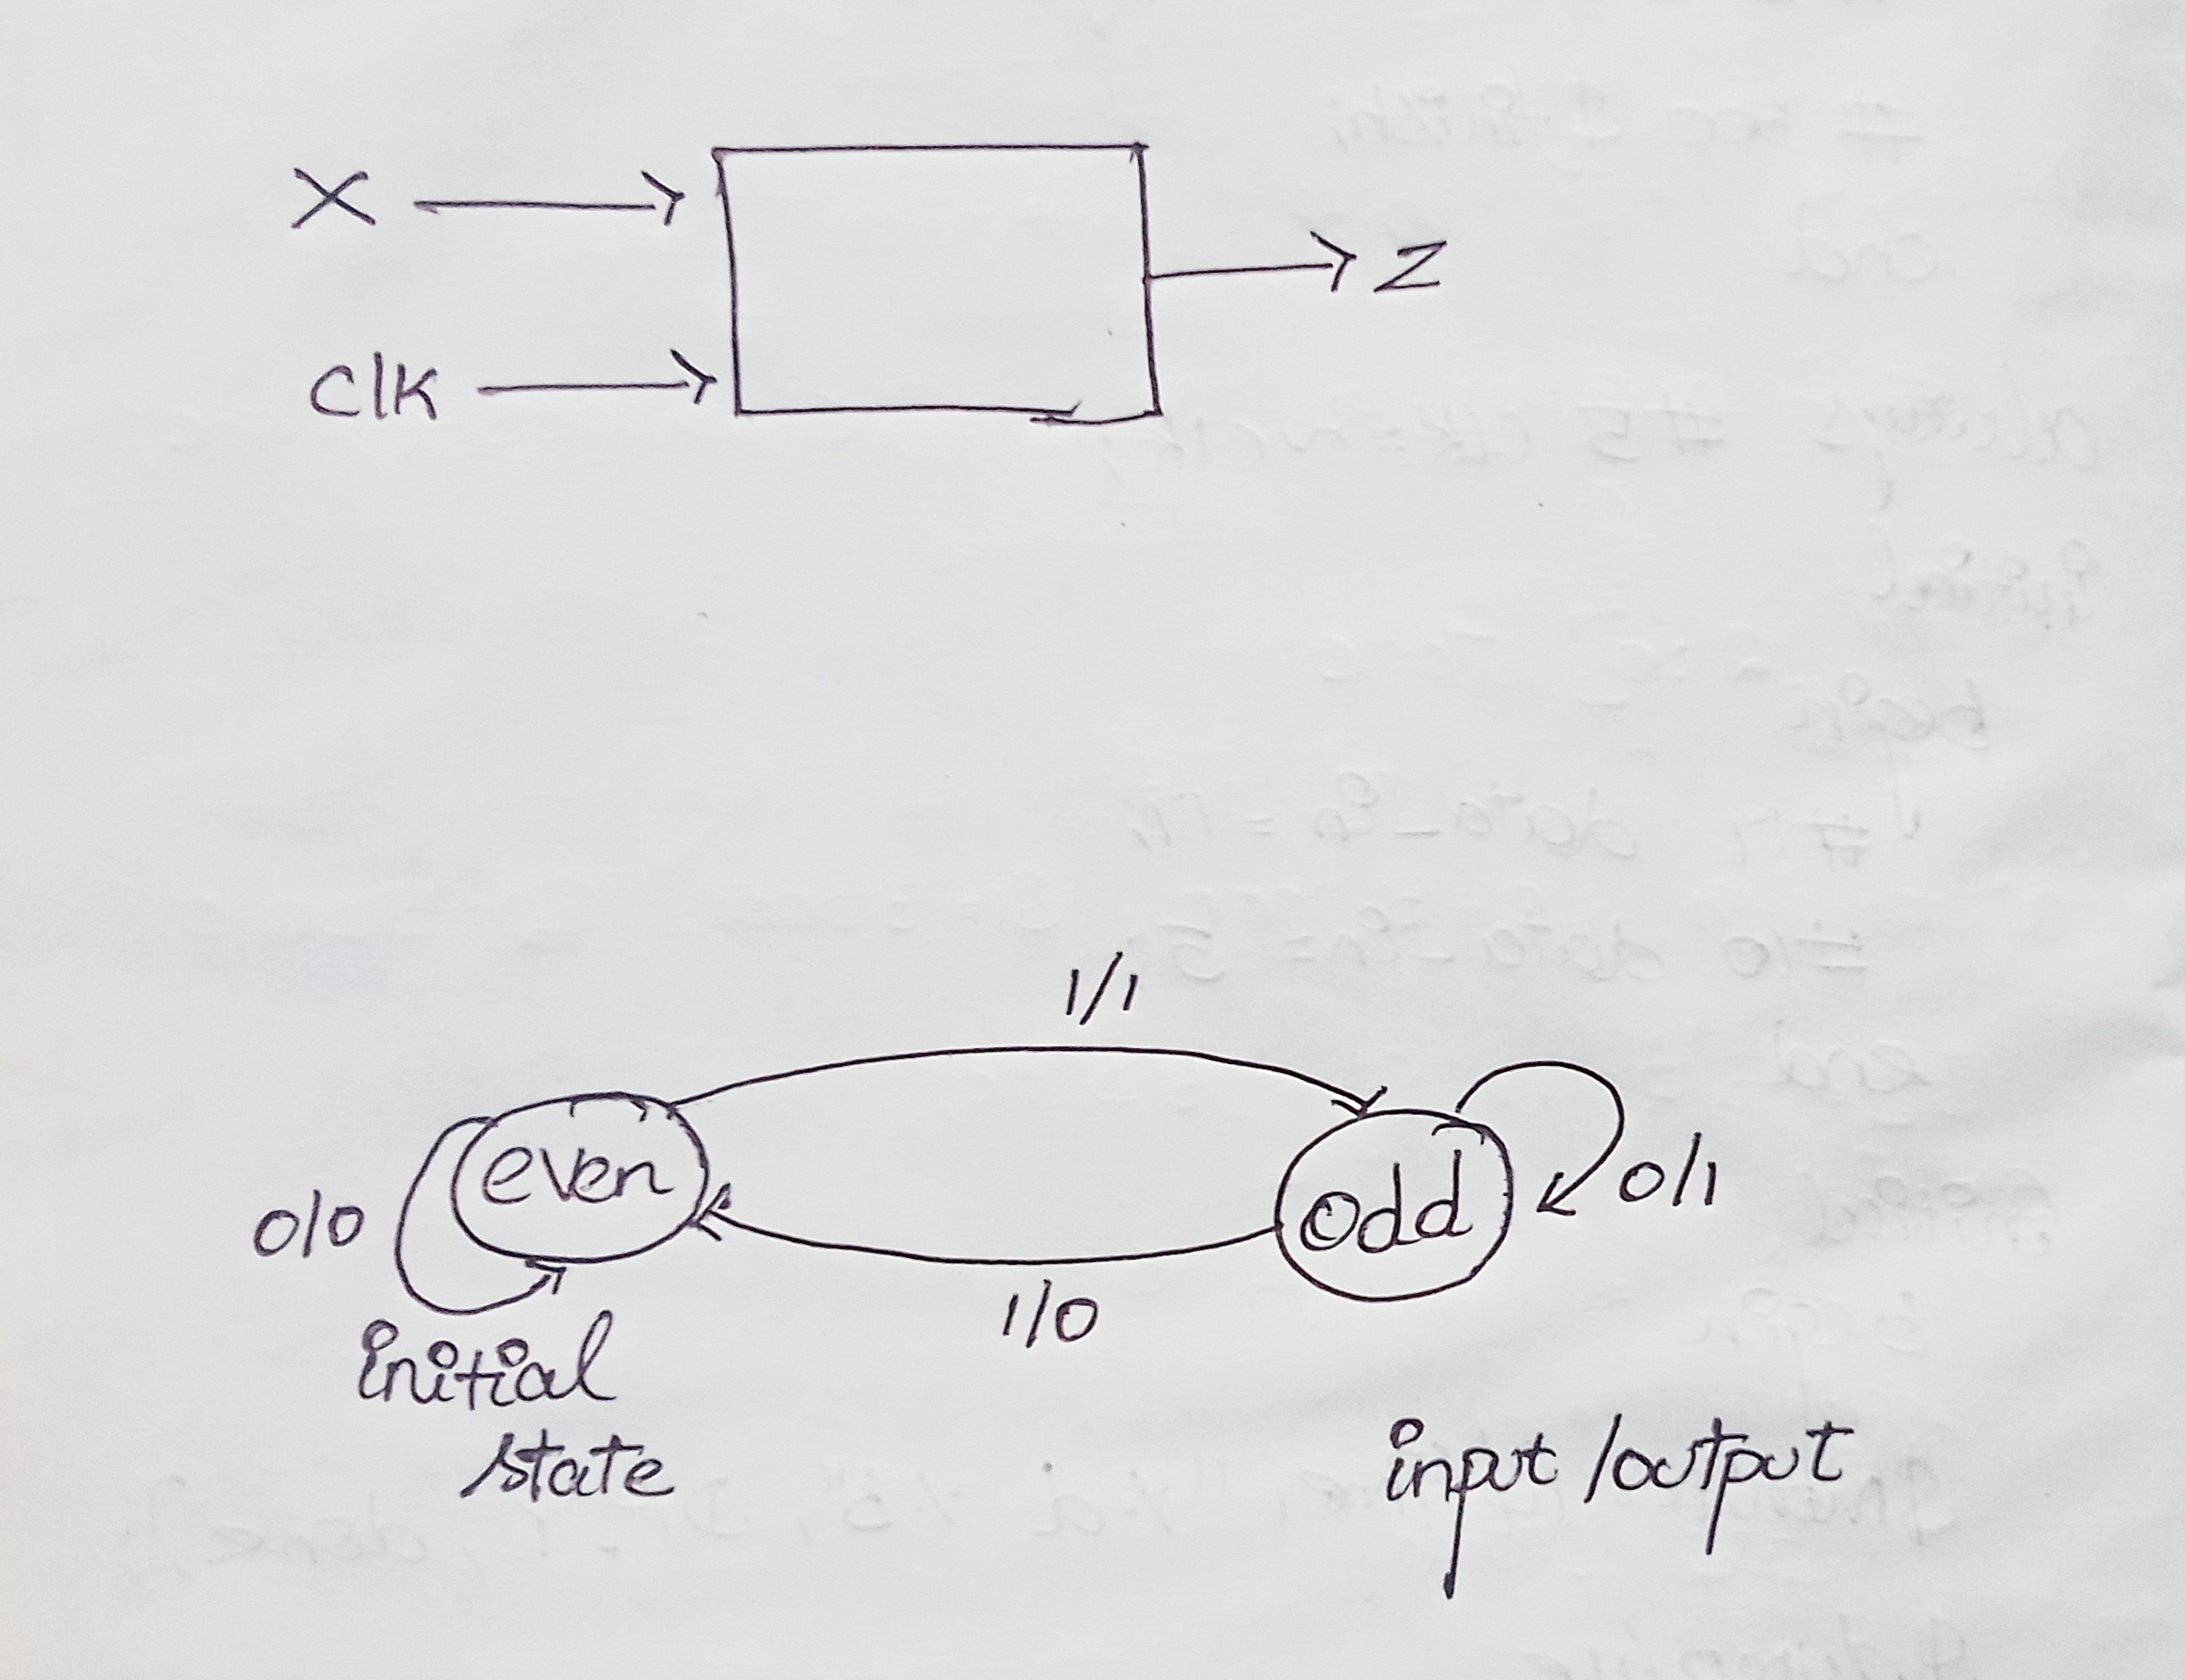 X
Z
Clk
1/1
even
odd
0/1
0/0
1/0
initial
state
input /output